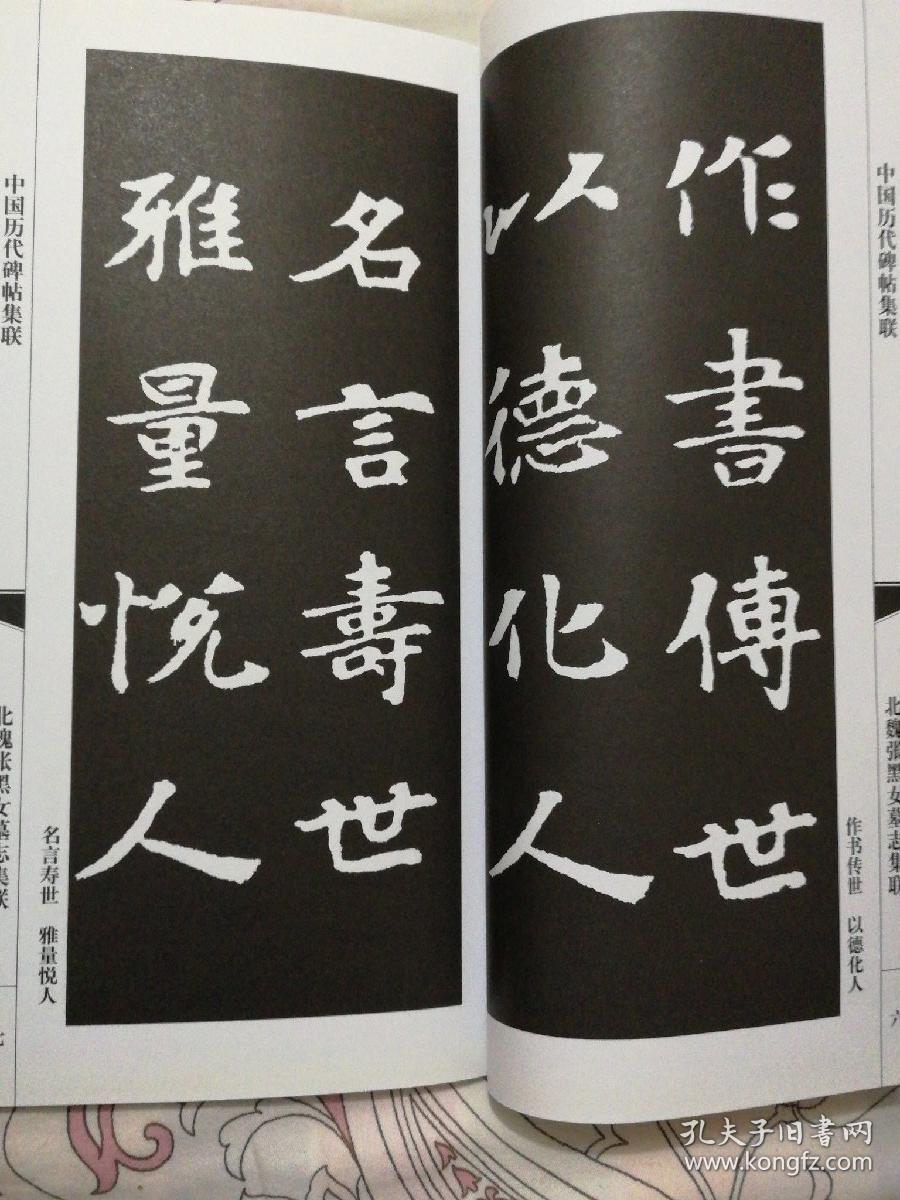 中国历代碑帖集联
北魏张黑女墓志集联
六
作書傳世
以德化人
作书传世 以德化人
名言壽世
雅量悦人
名言寿世 雅量悦人
中国历代碑帖集联
北魏张黑女墓志集联
七
孔夫子旧書网
www.kongfz.com